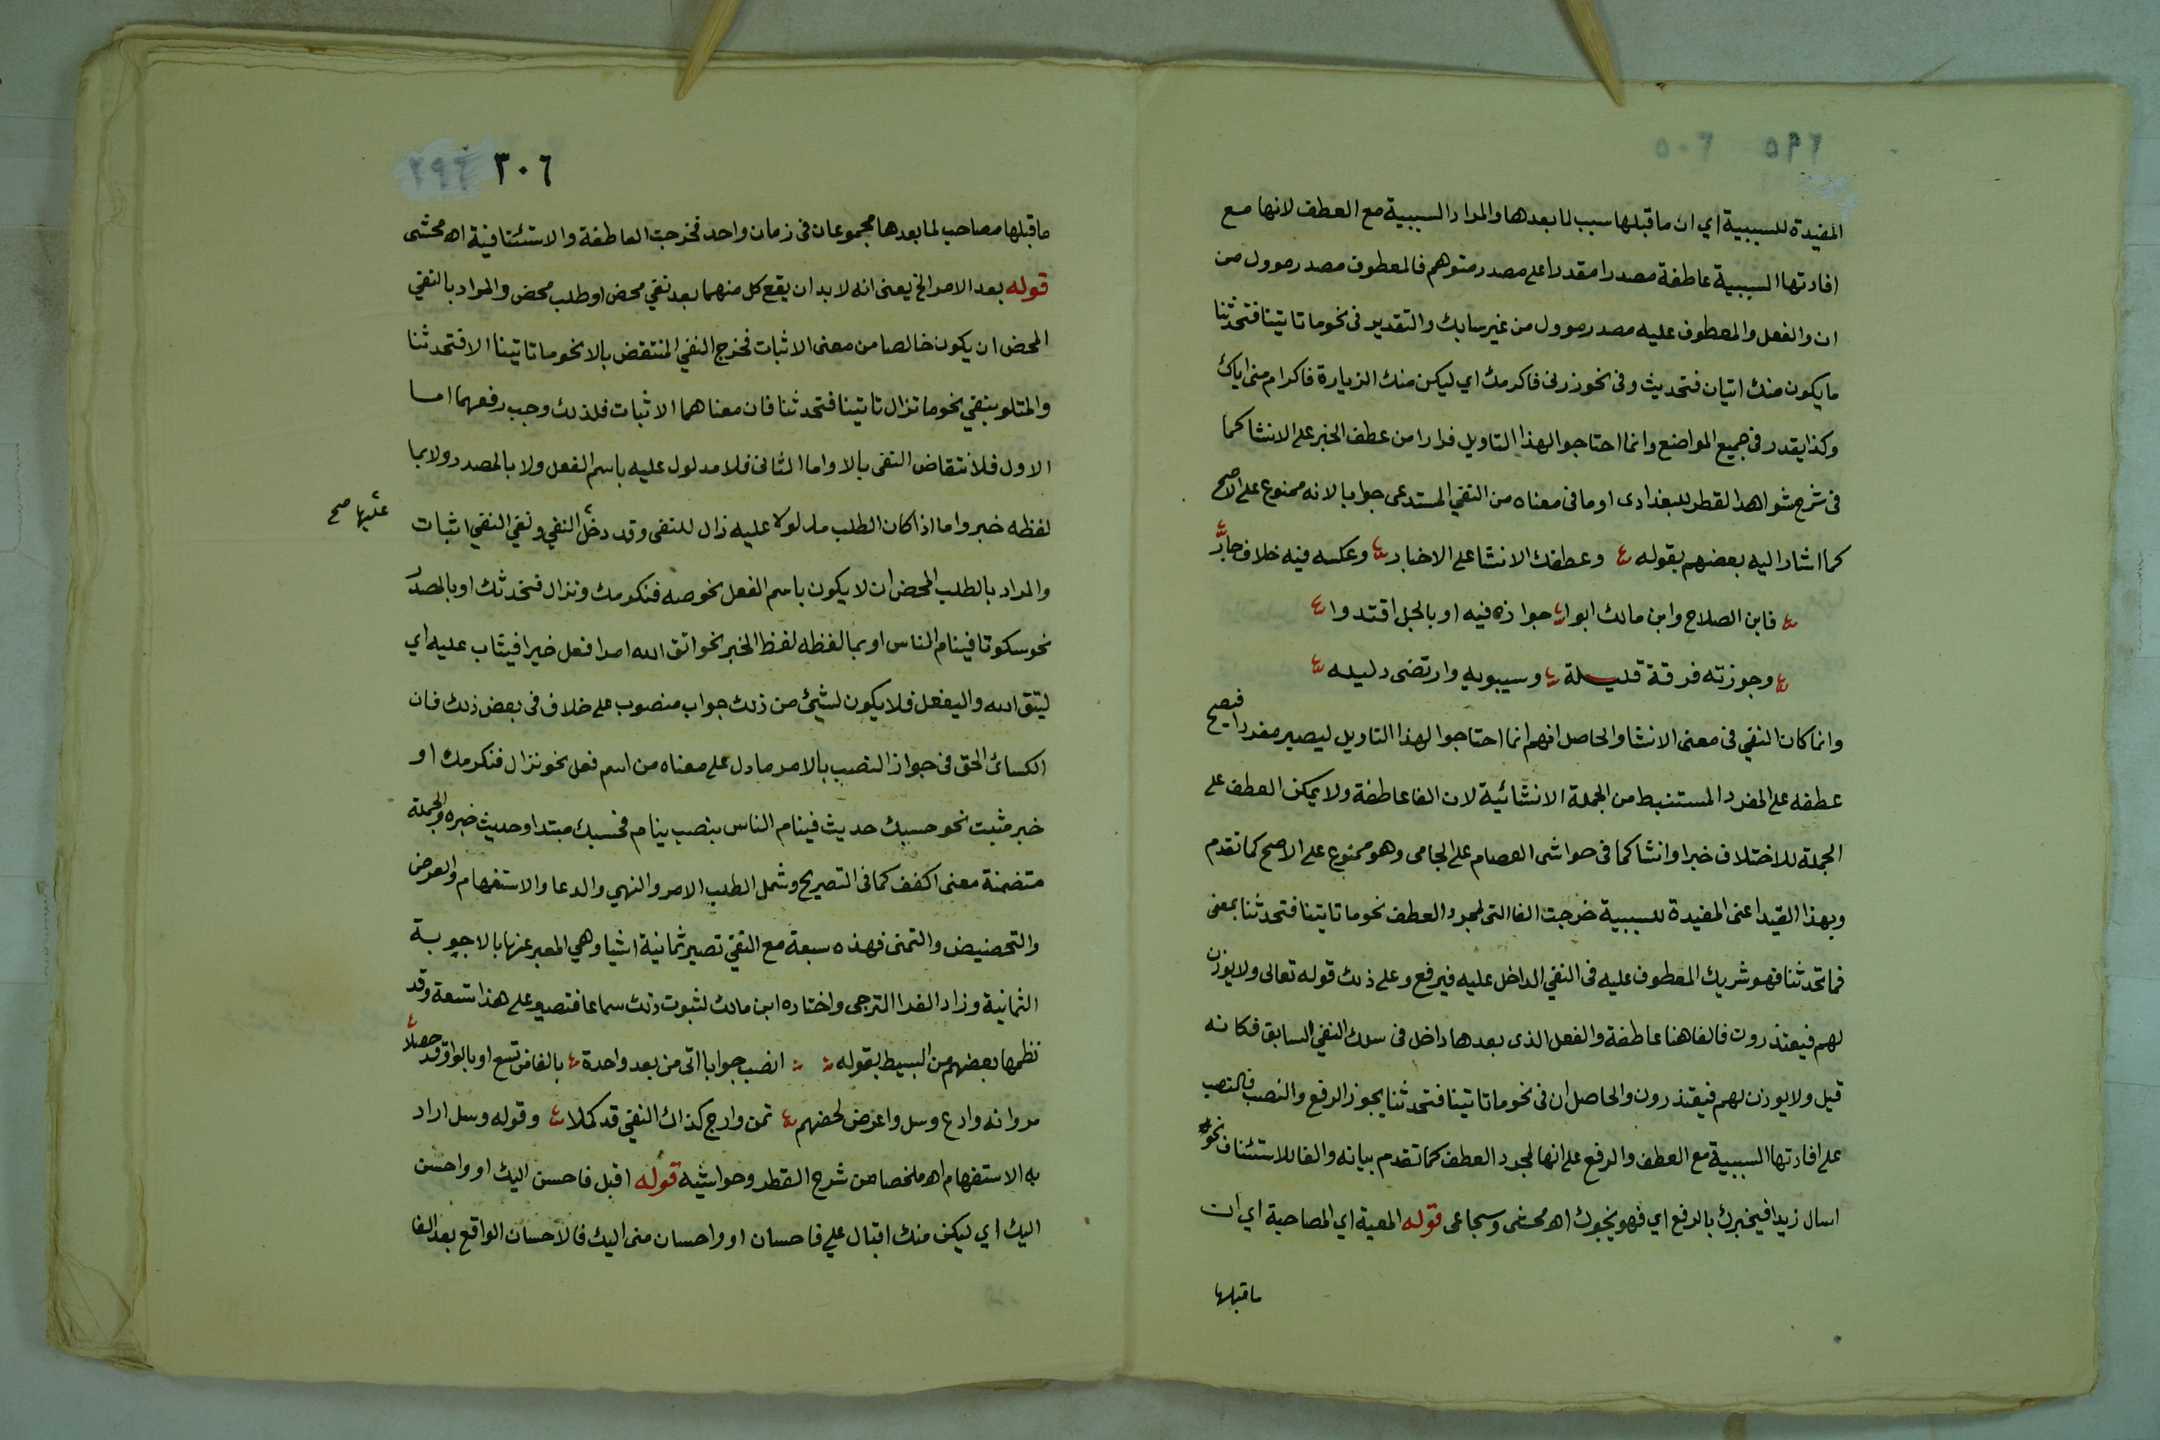 ٥٩٦ ٥٠٦
المفيدة للسببية اي ان ما قبلها سبب لما بعدها والمراد السببية مع العطف لانها مع
افادتها السببية عاطفة مصدرا مقدرا على مصدر متوهم فالمعطوف مصدر موول من
ان والفعل والمعطوف عليه مصدر موول من غير سابك والتقدير في نحو ما تاتينا فتحدثنا
ما يكون منك اتيان فتحديث وفي نحو زرني فاكرمك اي ليكن منك الزيارة فاكرام مني اياك
وكذا يقدر في جميع المواضع وانما احتاجوا لهذا التاويل فرارا من عطف الخبر على الانشا كما
في شرح شواهد القطر للبغدادى او ما في معناه من النفي المستدعى جوابا لانه ممنوع على الاصح
كما اشار اليه بعضهم بقوله وعطفك الانشا على الاخبار وعكسه فيه خلاف جار
فابن الصلاح وابن مالك ابوا جوازه فيه او بالجل اقتدوا
وجوزته فرقة قليلة وسيبويه وارتضى دليله
وانما كان النفي في معنى الانشا والحاصل انهم انما احتاجوا لهذا التاويل ليصير مفردا فيصح
عطفه على المفرد المستنبط من الجملة الانشائية لان الفا عاطفة ولا يمكن العطف على
الجملة للاختلاف خبرا وانشا كما في حواشى العصام على الجامى وهو ممنوع على الاصح كما تقدم
وبهذا القيد اعنى المفيدة للسببية خرجت الفا التى لمجرد العطف نحو ما تاتينا فتحدثنا بمعنى
فما تحدثنا فهو شريك المعطوف عليه في النفي الداخل عليه فيرفع وعلى ذلك قوله تعالى ولا يوذن
لهم فيعتذرون فالفا هنا عاطفة والفعل الذى بعدها داخل في سلك النفي السابق فكانه
قيل ولا يوذن لهم فيعتذرون والحاصل ان في نحو ما تاتينا فتحدثنا يجوز الرفع والنصب فالنصب
على افادتها السببية مع العطف والرفع على انها لمجرد العطف كما تقدم بيانه والفا للاستئناف نحو
اسال زيدا فيخبرك بالرفع اي فهو يخبرك اه محشى وسجاعى قوله المعية اي المصاحبة اي ان
ما قبلها
٣٠٦ ٢٩٦
ما قبلها مصاحب لما بعدها مجموعان في زمان واحد فخرجت العاطفة والاستئنافية اه محشى
قوله بعد الامر الخ يعنى انه لا بد ان يقع كل منهما بعد نفي محض او طلب محض والمراد بالنفي
المحض ان يكون خالصا من معنى الاثبات فخرج النفي المنتقض بالا نحو ما تاتينا الا فتحدثنا
والمتلو بنفي نحو ما تزال تاتينا فتحدثنا فان معناهما الاثبات فلذلك وجب رفعهما اما
الاول فلانتقاض النفى بالا واما الثانى فلا مدلول عليه باسم الفعل ولا بالمصدر ولا بما
لفظه خبر واما اذا كان الطلب مدلولا عليه زال للنفى وقد دخل النفي ونفي النفي اثبات
عليها صح
والمراد بالطلب المحض ان لا يكون باسم الفعل نحو صه فنكرمك ونزال فنحدثك او بالمصدر
نحو سكوتا فينام الناس او بما لفظه لفظ الخبر نحو اتق الله امرا فعل خيرا فيثاب عليه اي
ليتق الله واليفعل فلا يكون لشيئ من ذلك جواب منصوب على خلاف في بعض ذلك فان
الكسائ الحق في جواز النصب بالامر ما دل على معناه من اسم فعل نحو نزال فنكرمك او
خبر مثبت نحو حسبك حديث فينام الناس بنصب ينام فحسبك مبتدا وحديث خبره والجملة
متضمنة معنى اكفف كما في التصريح وشمل الطلب الامر والنهي والدعا والاستفهام والعرض
والتحضيض والتمنى فهذه سبعة مع النفي تصير ثمانية اشيا وهي المعبر عنها بالاجوبة
الثمانية وزاد الفرا الترجى واختاره ابن مالك لثبوت ذلك سماعا فتصير على هذا تسعة وقد
نظمها بعضهم من البسيط بقوله انصب جوابا اتى من بعد واحدة بالفا من تسع او بالواو قد حصلا
مر وانه وادع وسل واعرض لحضهم تمن وارج كذاك النفي قد كملا وقوله وسل اراد
به الاستفهام اه ملخصا من شرح القطر وحواشيه قوله اقبل فاحسن اليك او واحسن
اليك اي ليكن منك اقبال على فاحسان او واحسان منى اليك فالاحسان الواقع بعد الفا